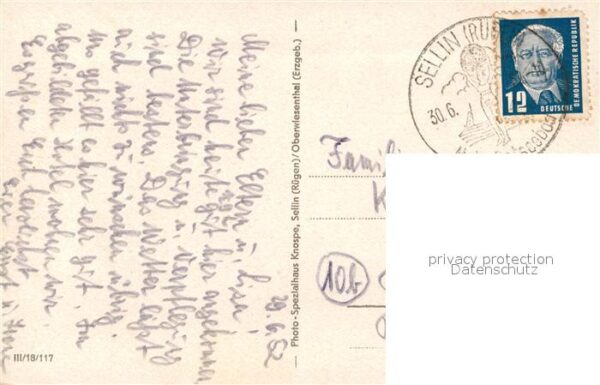 30.6.52
Meine lieben Eltern u.
Wir sind heute gut hier angekommen
Die Unterbringung u. Verpflegung
sind bestens. Das Wetter läßt
auch nichts zu wünschen übrig.
Uns gefällt es hier sehr gut. Im
abgebildeten Hotel wohnen wir.
Es grüßen Euch herzlichst
Eure
Photo-Spezialhaus Knospe, Sellin (Rügen)/Oberwiesenthal (Erzgeb.)
III/18/117
SELLIN (RÜ
30.6.
12
DEUTSCHE
DEMOKRATISCHE REPUBLIK
Famili
K
10b
privacy protection
Datenschutz